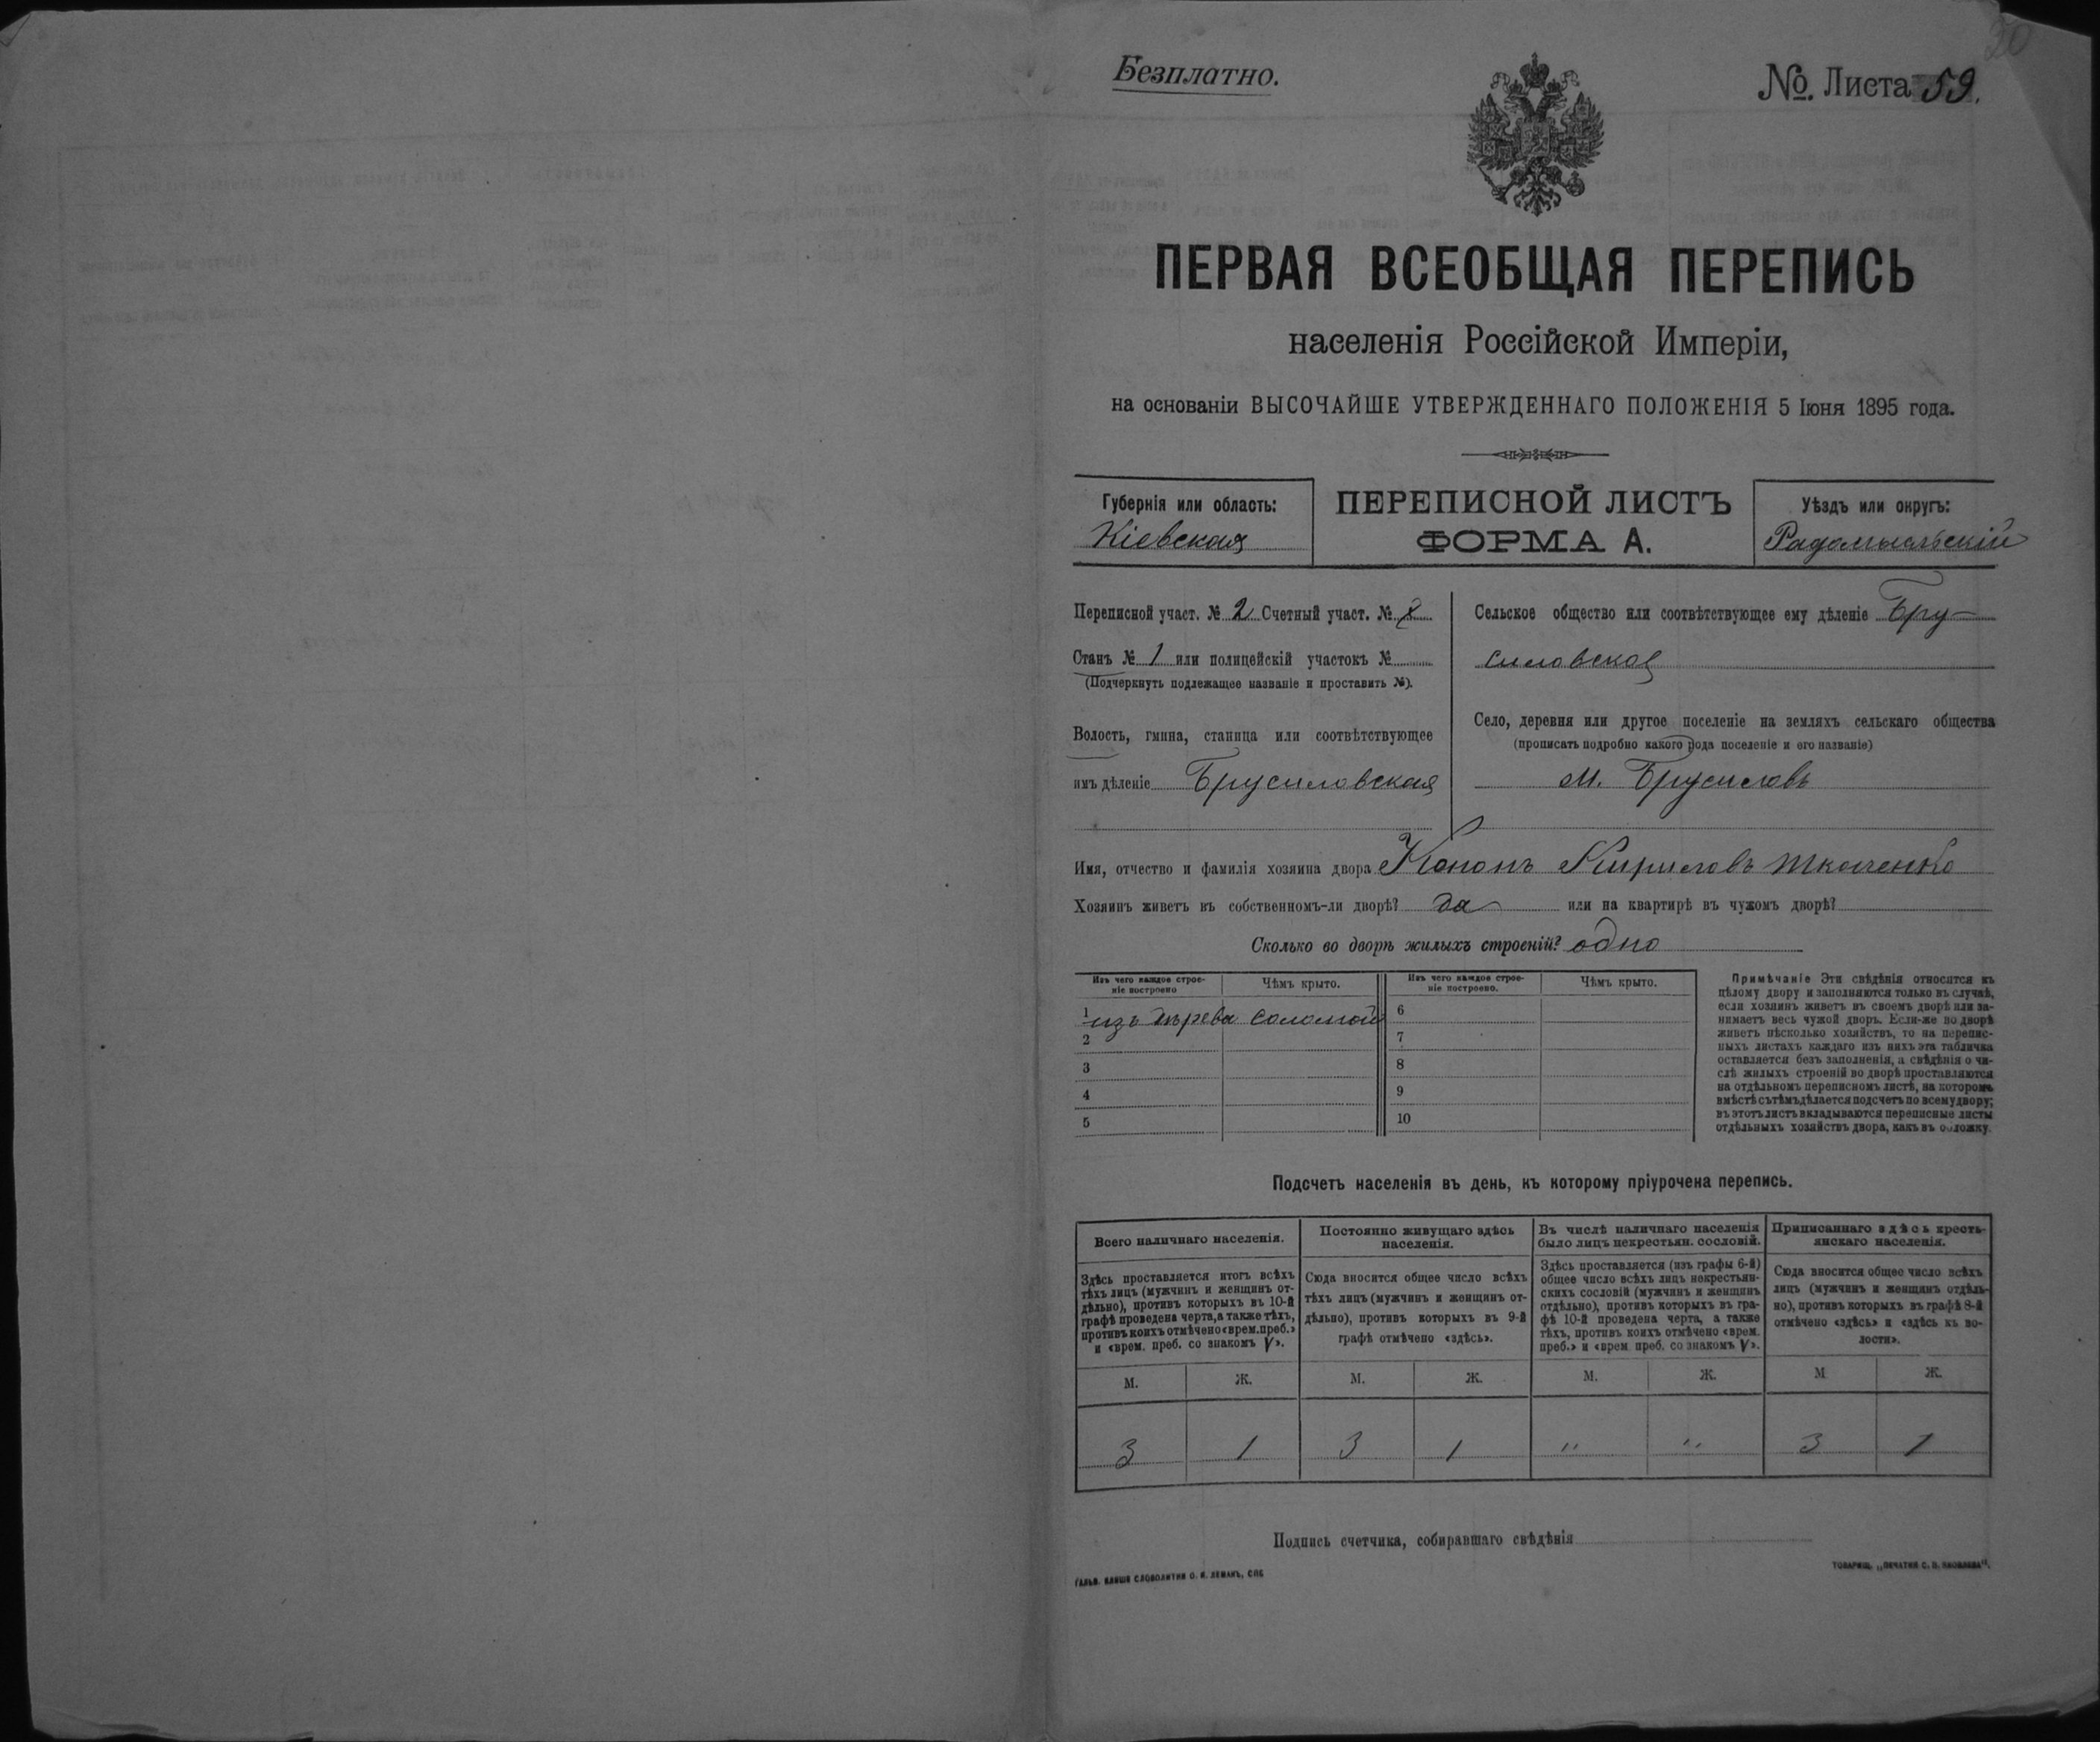 Безплатно.
№ Листа 59.
ПЕРВАЯ ВСЕОБЩАЯ ПЕРЕПИСЬ
населенія Россійской Имперіи,
на основаніи ВЫСОЧАЙШЕ УТВЕРЖДЕННАГО ПОЛОЖЕНІЯ 5 Іюня 1895 года.
Губернія или область:
Кіевская
ПЕРЕПИСНОЙ ЛИСТЪ
ФОРМА А.
Уѣздъ или округъ:
Радомысльскій
Переписной участ. № 2 Счетный участ. №
Станъ № 1 или полицейскій участокъ №
(Подчеркнуть подлежащее названіе и проставить №).
Волость, гмина, станица или соотвѣтствующее
имъ дѣленіе Брусиловская
Сельское общество или соотвѣтствующее ему дѣленіе Бру-
силовское
Село, деревня или другое поселеніе на земляхъ сельскаго общества
(прописать подробно какого рода поселеніе и его названіе)
м. Брусиловъ
Имя, отчество и фамилія хозяина двора Кононъ Кириловъ Ткаченко
Хозяинъ живетъ въ собственномъ-ли дворѣ? да или на квартирѣ въ чужомъ дворѣ?
Сколько во дворѣ жилыхъ строеній? одно
Изъ чего каждое строе-
ніе построено
Чѣмъ крыто.
Изъ чего каждое строе-
ніе построено.
Чѣмъ крыто.
1 изъ дерева соломой
2
3
4
5
6
7
8
9
10
Примѣчаніе Эти свѣдѣнія относятся къ
цѣлому двору и заполняются только въ случаѣ,
если хозяинъ живетъ въ своемъ дворѣ или за-
нимаетъ весь чужой дворъ. Если-же во дворѣ
живетъ нѣсколько хозяйствъ, то на перепис-
ныхъ листахъ каждаго изъ нихъ эта табличка
оставляется безъ заполненія, а свѣдѣнія о чи-
слѣ жилыхъ строеній во дворѣ проставляются
на отдѣльномъ переписномъ листѣ, на которомъ
вмѣстѣ съ тѣмъ дѣлается подсчетъ по всему двору;
въ этотъ листъ вкладываются переписные листы
отдѣльныхъ хозяйствъ двора, какъ въ обложку.
Подсчетъ населенія въ день, къ которому пріурочена перепись.
Всего наличнаго населенія.
Здѣсь проставляется итогъ всѣхъ
тѣхъ лицъ (мужчинъ и женщинъ от-
дѣльно), противъ которыхъ въ 10-й
графѣ проведена черта, а также тѣхъ,
противъ коихъ отмѣчено «врем. преб.»
и «врем. преб. со знакомъ V».
Постоянно живущаго здѣсь
населенія.
Сюда вносится общее число всѣхъ
тѣхъ лицъ (мужчинъ и женщинъ от-
дѣльно), противъ которыхъ въ 9-й
графѣ отмѣчено «здѣсь».
Въ числѣ наличнаго населенія
было лицъ некрестьян. сословій.
Здѣсь проставляется (изъ графы 6-й)
общее число всѣхъ лицъ некрестьян-
скихъ сословій (мужчинъ и женщинъ
отдѣльно), противъ которыхъ въ гра-
фѣ 10-й проведена черта, а также
тѣхъ, противъ коихъ отмѣчено «врем.
преб.» и «врем преб. со знакомъ V».
Приписаннаго здѣсь кресть-
янскаго населенія.
Сюда вносится общее число всѣхъ
лицъ (мужчинъ и женщинъ отдѣль-
но), противъ которыхъ въ графѣ 8-й
отмѣчено «здѣсь» и «здѣсь къ во-
лости».
М. Ж. М. Ж. М. Ж. М Ж.
3 1 3 1 " " 3 1
Подпись счетчика, собиравшаго свѣдѣнія
ГАЛЬВ. КЛИШЕ СЛОВОЛИТНИ О. И. ЛЕМАНЪ, СПБ
ТОВАРИЩ. „ПЕЧАТНЯ С. П. ЯКОВЛЕВА".